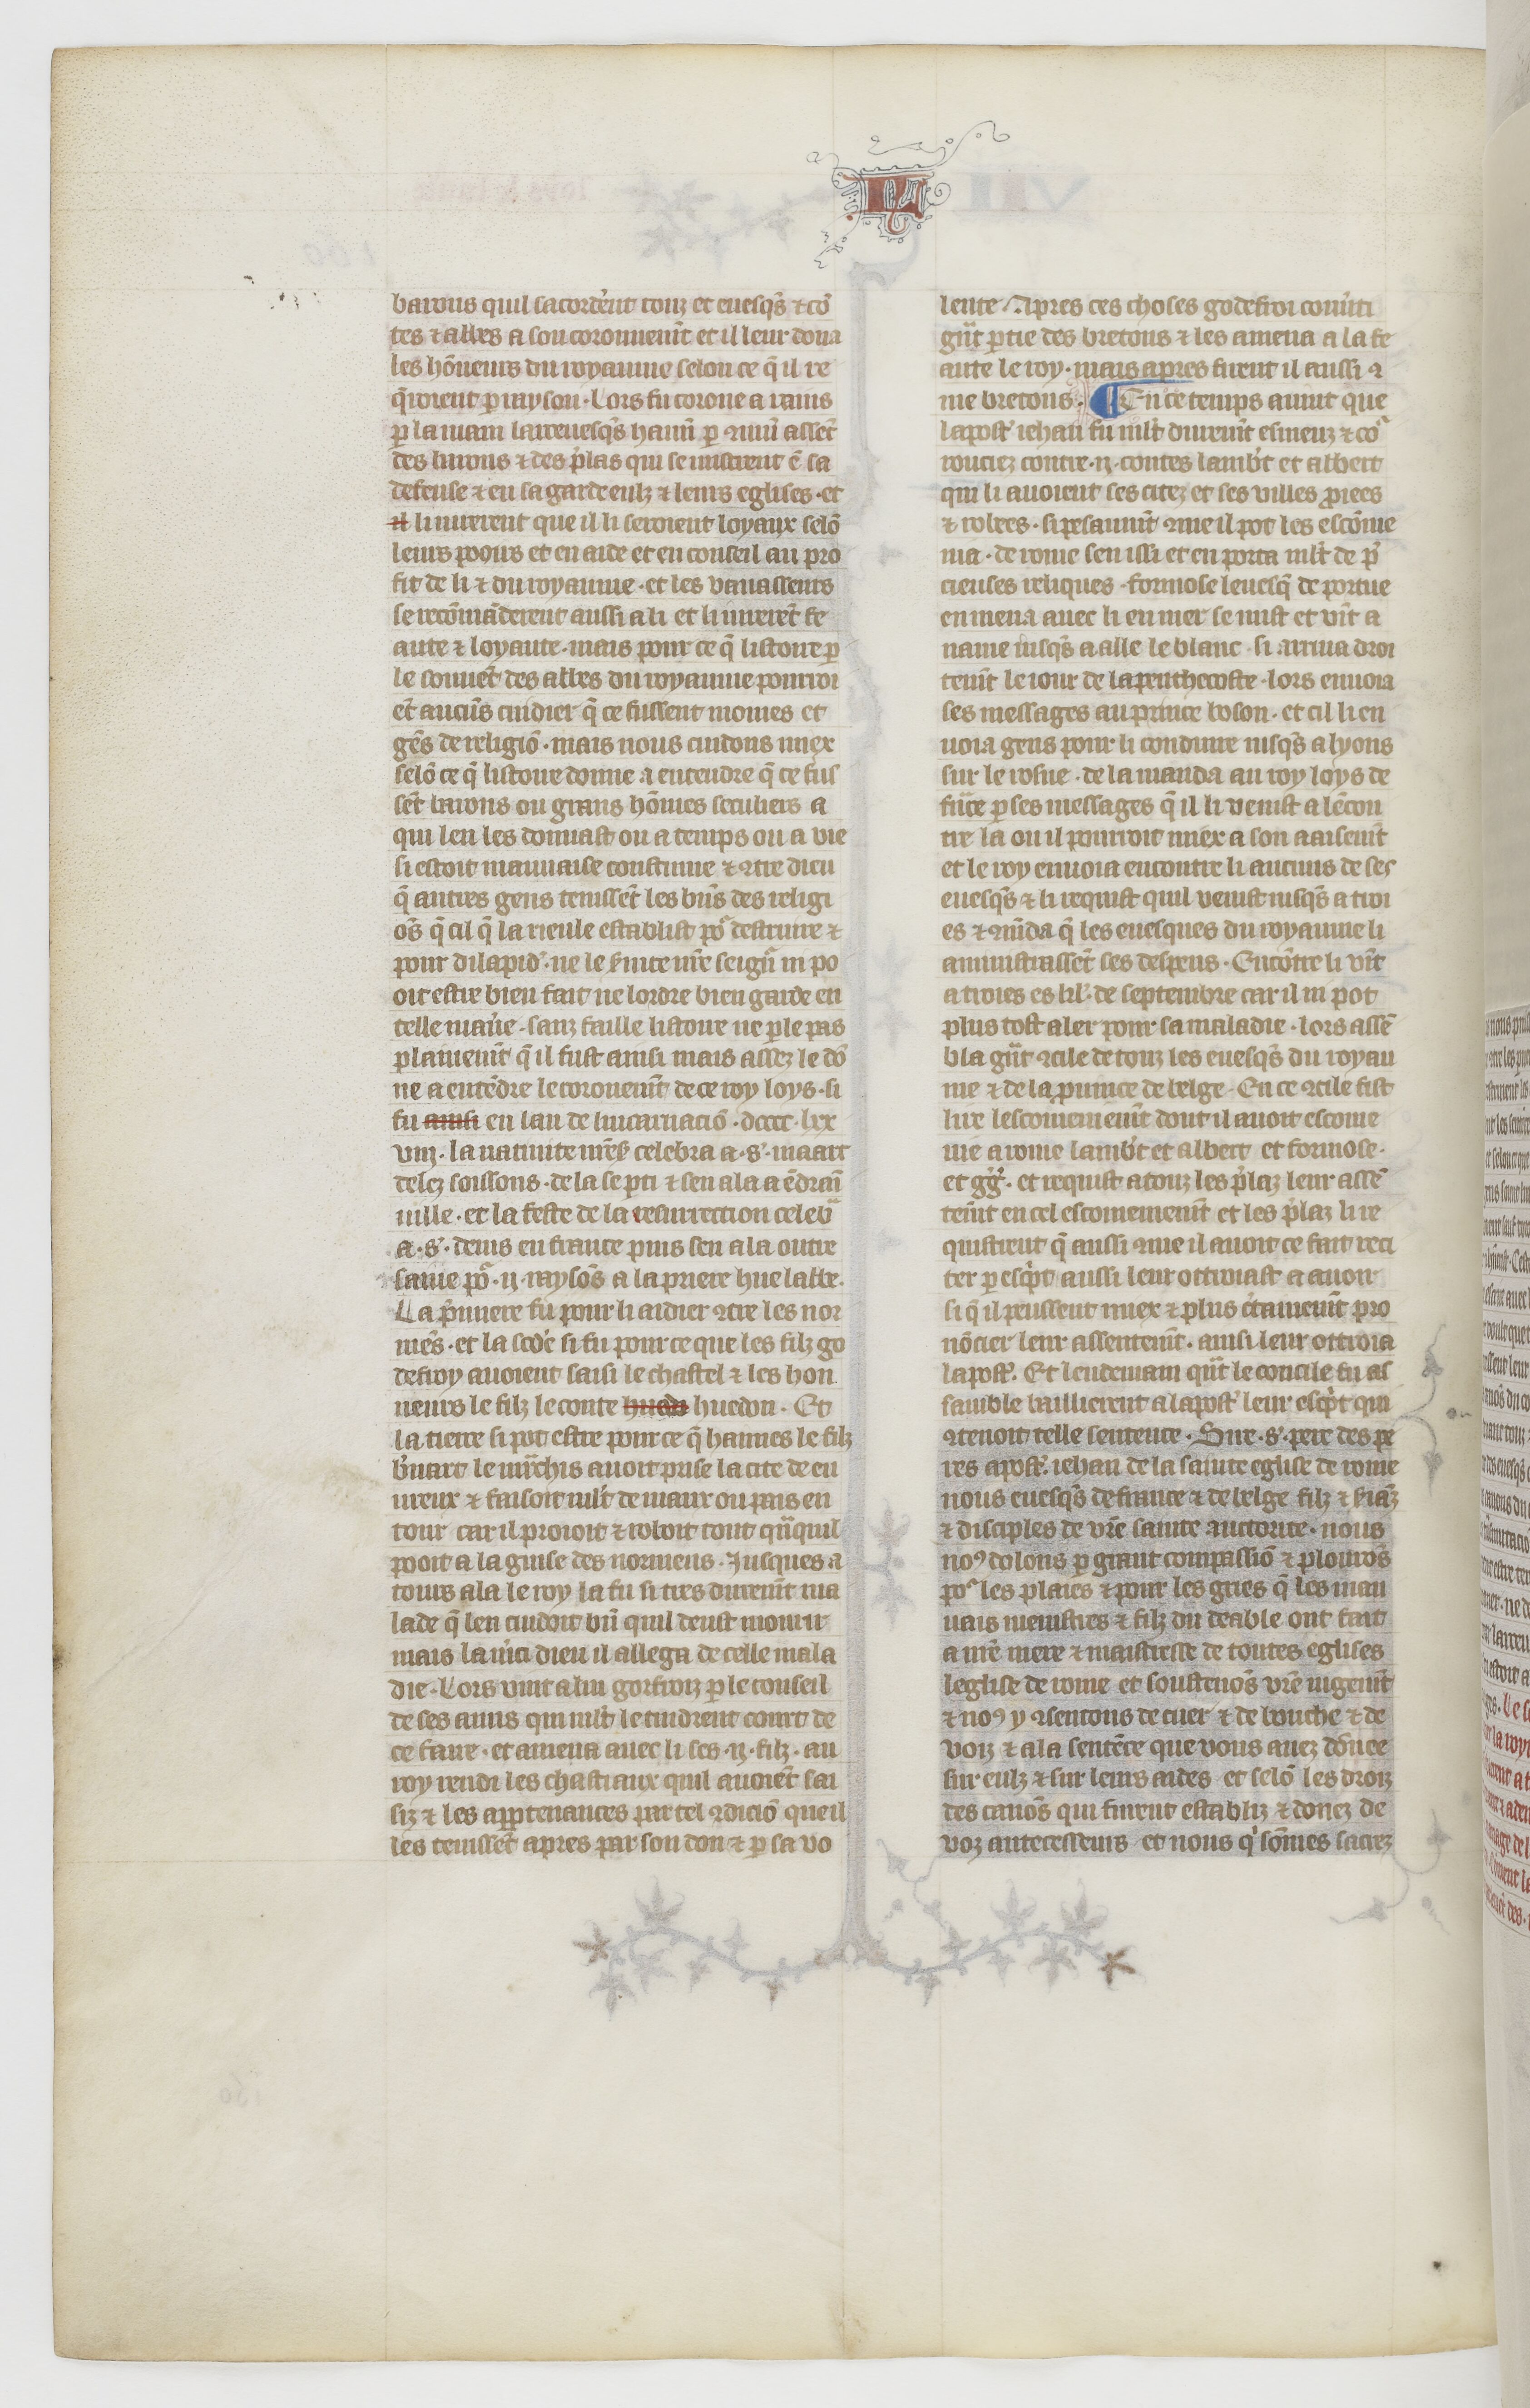 L
barons quil sacorderẽt touz et euesq̃s ⁊ cõ
tes ⁊ abbes a son coronnemẽt et il leur dona
les hõneurs du royaume selon ce q̃ il re
q̃roient p rayson. Lors fu corone a rains
p la main larceuesq̃s haim̃ p ꝯmũ assẽt
des barons ⁊ des p̃las qui se mistrent ẽ sa
defense ⁊ en sa garde eulz ⁊ leurs eglises. et
il li iurerent que il li seroient loyaux selõ
leurs pooirs et en aide et en conseil au pro
fit de li ⁊ du royaume. et les vauasseurs
se recõmãderent aussi a li et li iurerẽt fe
aute ⁊ loyaute. mais pour ce q̃ listoire p
le souuẽt des abbes du royaume pourroi
ẽt aucũs cuidier q̃ ce fussent moines et
gẽs de religiõ. mais nous cuidons miex
selõ ce q̃ listoire donne a entendre q̃ ce fus
sẽt barons ou grans hõmes seculiers a
qui len les donnast ou a temps ou a vie
si estoit mauuaise coustume ⁊ ꝯtre dieu
q̃ autres gens tenissẽt les biẽs des religi
õs q̃ cil q̃ la rieule establist po᷑ destruire ⁊
pour dilapid᷑. ne le s̃uice nr̃e seign᷑ ni po
oit estre bien fait ne lordre bien garde en
telle manie᷑. sanz faille listoire ne ple pas
plainemẽt q̃ il fust ainsi mais assez le dõ
ne a entẽdre le coronemẽt de ce roy loys. si
fu ainsi en lan de lincarnaciõ. dccc. lxx
viij. la natiuite nr̃e s᷑ celebra a. s᷑. maart
delez soissons. de la se parti ⁊ sen ala a ẽdrani
uille. et la feste de la resurrection celeb᷑
a. s᷑. denis en france puis sen ala outre
saine po᷑. ij. raysõs a la priere hue labbe.
La p̃miere fu pour li aidier ꝯtre les nor
mẽs. et la scde si fu pour ce que les filz go
defroy auoient saisi le chastel ⁊ les hon
neurs le filz le conte huedn huedon. Et
la tierce si pot estre pour ce q̃ hannes le filz
b̃nart le mr̃chis auoit prise la cite de eu
ureux ⁊ faisoit mlt̃ de maux ou pais en
tour car il proioit ⁊ roboit tout qũquil
pooit a la guise des normens. Jusques a
tours ala le roy la fu si tres duremẽt ma
lade q̃ len cuidoit biẽ quil deust mourir
mais la m̃ci dieu il allega de celle mala
die. Lors vint a lui gorfroiz p le conseil
de ses amis qui mlt̃ le tindrent court de
ce faire. et amena auec li ses. ij. filz. au
roy rendi les chastiaux quil auoiẽt sai
siz ⁊ les appartenances par tel ꝯdiciõ que il
les tenissẽt apres par son don ⁊ p sa vo
lente Apres ces choses godefroi conũti
grãt ptie des bretons ⁊ les amena a la fe
aute le roy. mais apres firent il aussi ꝯ
me bretons. ¶ En ce temps auint que
lapost᷑ iehan fu mlt̃ duremẽt esmeuz ⁊ co᷑
rouciez contre. ij. contes lamb̃t et albert
qui li auoient ses citez et ses villes proiees
⁊ robees. si pesaumẽt ꝯme il pot les escõme
nia. de rome sen issi et en porta mlt̃ de p̃
cieuses reliques. formose leuesq̃ de portue
en mena auec li en mer se mist et vĩt a
nauie iusq̃s a alle le blanc. si arriua droi
temẽt le iour de la penthecoste. lors enuoia
ses messages au prince boson. et cil li en
uoia gens pour li conduire iusq̃s a lyons
sur le rosne. de la manda au roy loys de
frãce p ses messages q̃ il li venist a lẽcon
tre la ou il pourroit miex a son aaisemẽt
et le roy enuoia encontre li aucuns de ses
euesq̃s ⁊ li requist quil venist iusq̃s a troi
es ⁊ mãda q̃ les euesques du royaume li
aministrassẽt ses despens. Encõtre li vĩt
a troies es kl᷑. de septembre car il ni pot
plus tost aler pour sa maladie. lors assẽ
bla grãt ꝯcile de touz les euesq̃s du royau
me ⁊ de la prouince de belge. En ce ꝯcile fist
lire lescomenimẽt dont il auoit escome
nie a rome lamb̃t et albert et formose.
et gg᷑. et requist a touz les p̃laz leur assẽ
temẽt en cel escomeniemẽt et les p̃laz li re
quistrent q̃ aussi ꝯme il auoit ce fait reci
ter p esc̃pt aussi leur ottroiast a auoir
si q̃ il peussent miex ⁊ plus c̃tainemẽt pro
nõcier leur assentemẽt. ainsi leur ottroia
lapost᷑. Et lendemain qũt le concile fu as
samble baillierent a lapost᷑ leur esc̃pt qui
ꝯtenoit telle sentence. Sire. s᷑. pere des pe
res apost᷑. iehan de la sainte eglise de rome
nous euesq̃s de france ⁊ de belge filz ⁊ s̃iãz
⁊ disciples de vr̃e sainte auctorite. nous
noꝰ dolons p grant compassiõ ⁊ plourõs
po᷑ les plaies ⁊ pour les gries q̃ les mau
uais menistres ⁊ filz du deable ont fait
a nr̃e mere ⁊ maistresse de toutes eglises
leglise de rome et soustenõs vr̃e iugemẽt
⁊ noꝰ y ꝯsentons de cuer ⁊ de bouche ⁊ de
voiz ⁊ a la sentẽce que vous auez dõnee
sur eulz ⁊ sur leurs aides et selõ les droiz
des canõs qui furent establiz ⁊ donez de
voz antecesseurs et nous q̃ sõmes sacrez